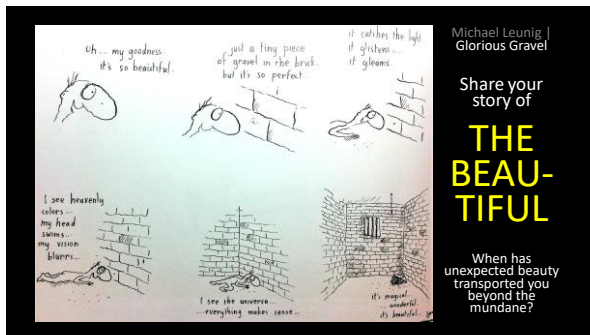 Uh... my goodness..
it's so beautiful..
just a tiny piece
of gravel in the brick..
but it's so perfect...
it catches the light
it glistens....
it gleams...
I see heavenly
colors...
my head
swims...
my vision
blurrs...
I see the universe...
...everything makes sense...
it's magical...
wonderful
it's beautiful...
Michael Leunig |
Glorious Gravel
Share your
story of
THE
BEAU-
TIFUL
When has
unexpected beauty
transported you
beyond the
mundane?